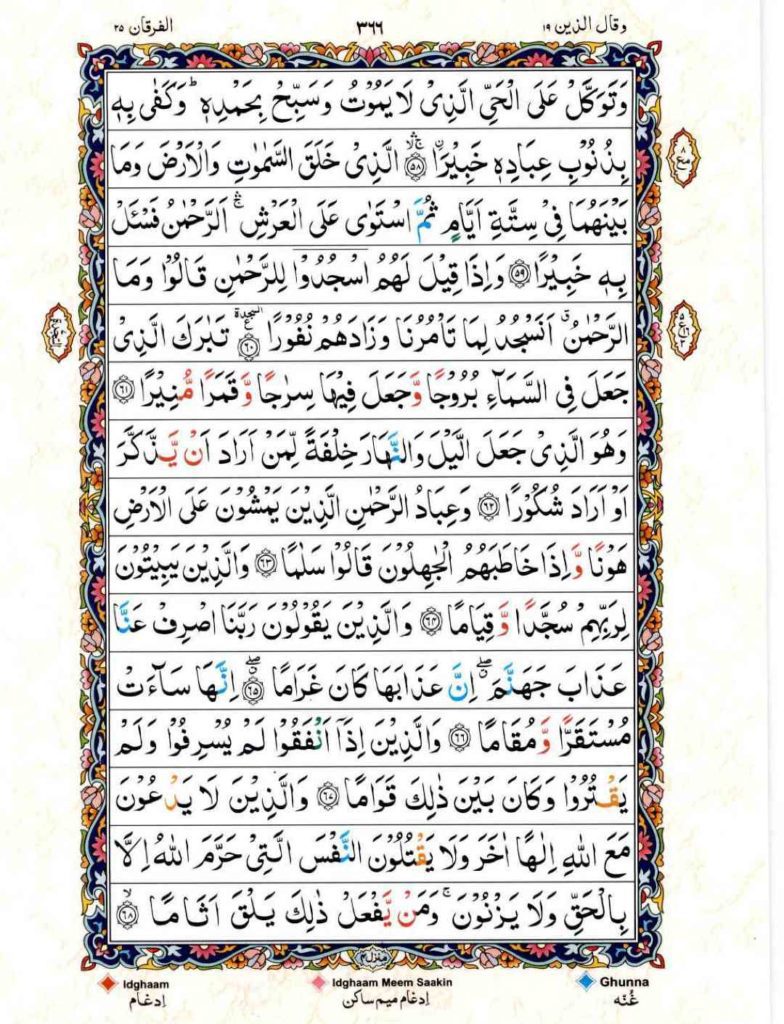 وقال الذین ۱۹ ۳۶۶ الفرقان ۲۵
وَتَوَكَّلْ عَلَى الْحَيِّ الَّذِیْ لَا یَمُوْتُ وَسَبِّحْ بِحَمْدِهٖ ؕ وَكَفٰى بِهٖ
بِذُنُوْبِ عِبَادِهٖ خَبِیْرًا ۚۛۙ ﴿۵۸﴾ الَّذِیْ خَلَقَ السَّمٰوٰتِ وَالْاَرْضَ وَمَا
بَیْنَهُمَا فِیْ سِتَّةِ اَیَّامٍ ثُمَّ اسْتَوٰى عَلَى الْعَرْشِ ۚۛ اَلرَّحْمٰنُ فَسْئَلْ
بِهٖ خَبِیْرًا ﴿۵۹﴾ وَاِذَا قِیْلَ لَهُمُ اسْجُدُوْا لِلرَّحْمٰنِ قَالُوْا وَمَا
الرَّحْمٰنُ ۗ اَنَسْجُدُ لِمَا تَاْمُرُنَا وَزَادَهُمْ نُفُوْرًا السجدة ع ﴿۶۰﴾ تَبٰرَكَ الَّذِیْ
جَعَلَ فِی السَّمَآءِ بُرُوْجًا وَّجَعَلَ فِیْهَا سِرٰجًا وَّقَمَرًا مُّنِیْرًا ﴿۶۱﴾
وَهُوَ الَّذِیْ جَعَلَ الَّیْلَ وَالنَّهَارَ خِلْفَةً لِّمَنْ اَرَادَ اَنْ یَّذَّكَّرَ
اَوْ اَرَادَ شُكُوْرًا ﴿۶۲﴾ وَعِبَادُ الرَّحْمٰنِ الَّذِیْنَ یَمْشُوْنَ عَلَى الْاَرْضِ
هَوْنًا وَّاِذَا خَاطَبَهُمُ الْجٰهِلُوْنَ قَالُوْا سَلٰمًا ﴿۶۳﴾ وَالَّذِیْنَ یَبِیْتُوْنَ
لِرَبِّهِمْ سُجَّدًا وَّقِیَامًا ﴿۶۴﴾ وَالَّذِیْنَ یَقُوْلُوْنَ رَبَّنَا اصْرِفْ عَنَّا
عَذَابَ جَهَنَّمَ ۖۗ اِنَّ عَذَابَهَا كَانَ غَرَامًا ۖ ﴿۶۵﴾ اِنَّهَا سَآءَتْ
مُسْتَقَرًّا وَّمُقَامًا ﴿۶۶﴾ وَالَّذِیْنَ اِذَاۤ اَنْفَقُوْا لَمْ یُسْرِفُوْا وَلَمْ
یَقْتُرُوْا وَكَانَ بَیْنَ ذٰلِكَ قَوَامًا ﴿۶۷﴾ وَالَّذِیْنَ لَا یَدْعُوْنَ
مَعَ اللّٰهِ اِلٰهًا اٰخَرَ وَلَا یَقْتُلُوْنَ النَّفْسَ الَّتِیْ حَرَّمَ اللّٰهُ اِلَّا
بِالْحَقِّ وَلَا یَزْنُوْنَ ۚ وَمَنْ یَّفْعَلْ ذٰلِكَ یَلْقَ اَثَامًا ۙ ﴿۶۸﴾
منزل۴
Idghaam Idghaam Meem Saakin Ghunna
اِدغَام اِدغَام میم ساکن غُنّه